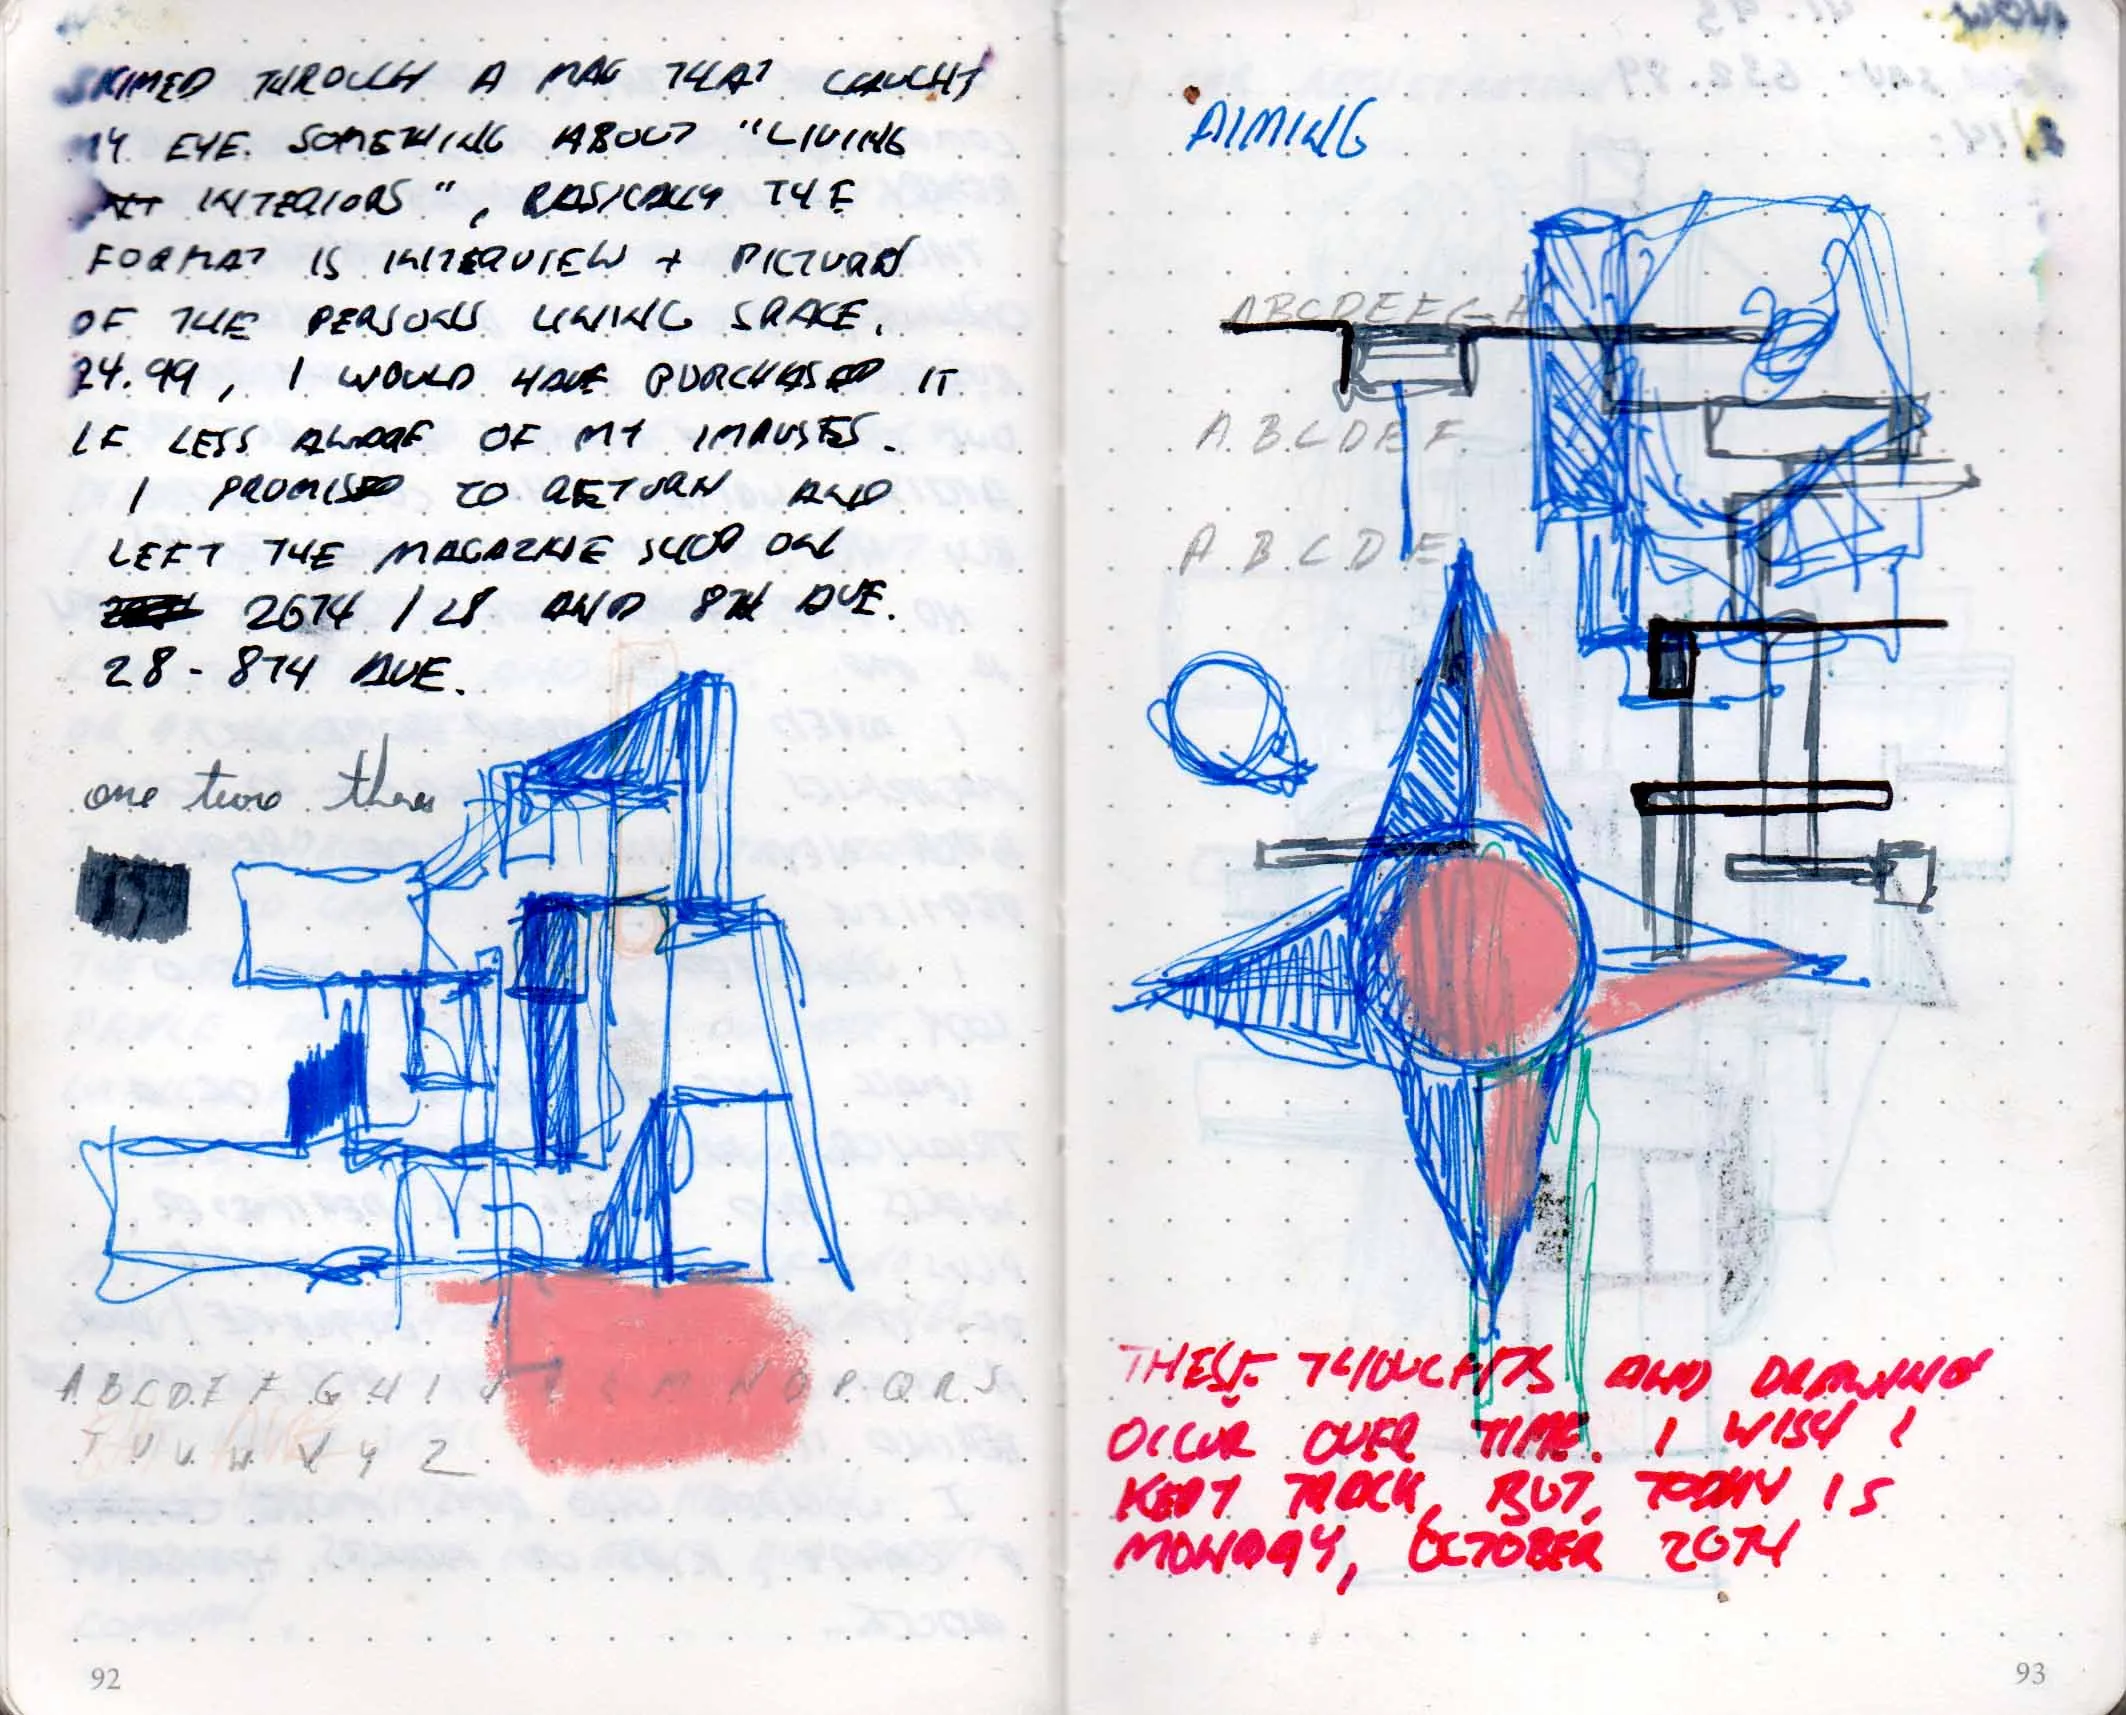 SKIMED THROUGH A MAG THAT CAUGHT
MY EYE. SOMETHING ABOUT "LIVING
INTERIORS", BASICALLY THE
FORMAT IS INTERVIEW + PICTURE
OF THE PERSONS LIVING SPACE.
24.99, I WOULD HAVE PURCHASED IT
IF LESS AWARE OF MY IMPULSES.
I PROMISED TO RETURN AND
LEFT THE MAGAZINE SHOP ON
26TH / 28 AND 8TH AVE.
28 - 8TH AVE.
one two three
A B C D E F G H I J K L M N O P Q R S
T U V W X Y Z
92
AIMING
ABCDEFGH
A. B. C. D. E. F.
A. B. C. D. E
THESE THOUGHTS AND DRAWING
OCCUR OVER TIME. I WISH I
KEPT TRACK, BUT, TODAY IS
MONDAY, OCTOBER 20TH
93